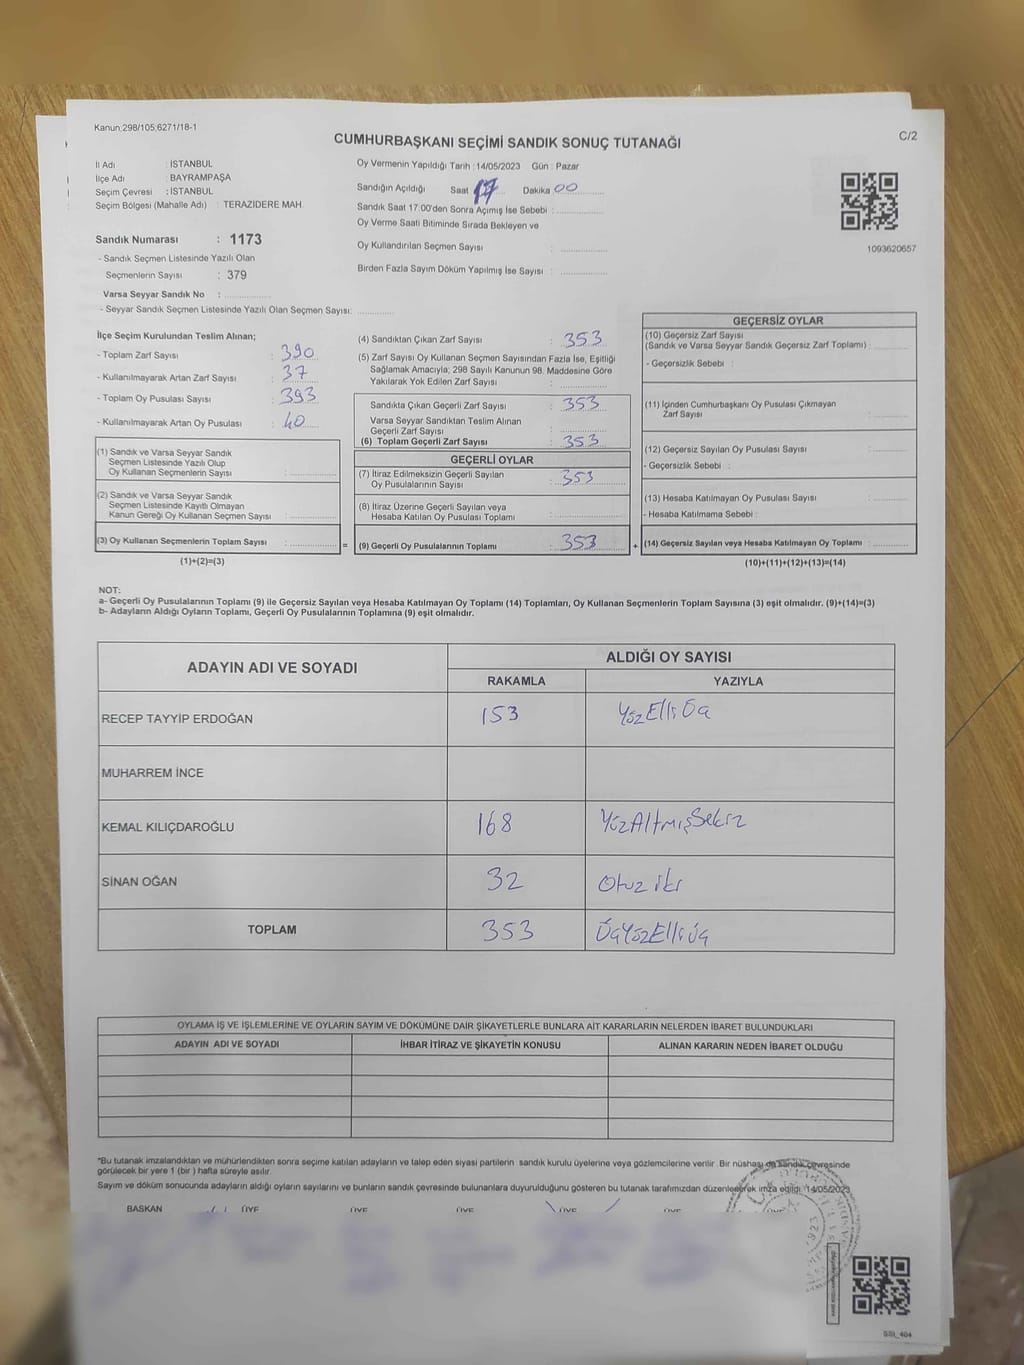 Kanun:298/105;6271/18-1
CUMHURBAŞKANI SEÇİMİ SANDIK SONUÇ TUTANAĞI
C/2
İl Adı : İSTANBUL
İlçe Adı : BAYRAMPAŞA
Seçim Çevresi : İSTANBUL
Seçim Bölgesi (Mahalle Adı) : TERAZİDERE MAH.
Sandık Numarası : 1173
- Sandık Seçmen Listesinde Yazılı Olan
Seçmenlerin Sayısı : 379
Varsa Seyyar Sandık No :
- Seyyar Sandık Seçmen Listesinde Yazılı Olan Seçmen Sayısı:
Oy Vermenin Yapıldığı Tarih :14/05/2023 Gün : Pazar
Sandığın Açıldığı Saat 17 Dakika 00
Sandık Saat 17:00'den Sonra Açımış İse Sebebi :
Oy Verme Saati Bitiminde Sırada Bekleyen ve
Oy Kullandırılan Seçmen Sayısı :
Birden Fazla Sayım Döküm Yapılmış İse Sayısı :
1093620657
İlçe Seçim Kurulundan Teslim Alınan;
- Toplam Zarf Sayısı : 390
- Kullanılmayarak Artan Zarf Sayısı : 37
- Toplam Oy Pusulası Sayısı : 393
- Kullanılmayarak Artan Oy Pusulası : 40
(1) Sandık ve Varsa Seyyar Sandık
Seçmen Listesinde Yazılı Olup
Oy Kullanan Seçmenlerin Sayısı :
(2) Sandık ve Varsa Seyyar Sandık
Seçmen Listesinde Kayıtlı Olmayan
Kanun Gereği Oy Kullanan Seçmen Sayısı :
(3) Oy Kullanan Seçmenlerin Toplam Sayısı :
(1)+(2)=(3)
=
(4) Sandıktan Çıkan Zarf Sayısı : 353
(5) Zarf Sayısı Oy Kullanan Seçmen Sayısından Fazla İse, Eşitliği
Sağlamak Amacıyla; 298 Sayılı Kanunun 98. Maddesine Göre
Yakılarak Yok Edilen Zarf Sayısı :
Sandıkta Çıkan Geçerli Zarf Sayısı : 353
Varsa Seyyar Sandıktan Teslim Alınan
Geçerli Zarf Sayısı :
(6) Toplam Geçerli Zarf Sayısı : 353
GEÇERLİ OYLAR
(7) İtiraz Edilmeksizin Geçerli Sayılan
Oy Pusulalarının Sayısı : 353
(8) İtiraz Üzerine Geçerli Sayılan veya
Hesaba Katılan Oy Pusulası Toplamı :
(9) Geçerli Oy Pusulalarının Toplamı : 353
+
GEÇERSİZ OYLAR
(10) Geçersiz Zarf Sayısı
(Sandık ve Varsa Seyyar Sandık Geçersiz Zarf Toplamı) :
- Geçersizlik Sebebi :
(11) İçinden Cumhurbaşkanı Oy Pusulası Çıkmayan
Zarf Sayısı :
(12) Geçersiz Sayılan Oy Pusulası Sayısı :
- Geçersizlik Sebebi :
(13) Hesaba Katılmayan Oy Pusulası Sayısı :
- Hesaba Katılmama Sebebi :
(14) Geçersiz Sayılan veya Hesaba Katılmayan Oy Toplamı :
(10)+(11)+(12)+(13)=(14)
NOT:
a- Geçerli Oy Pusulalarının Toplamı (9) ile Geçersiz Sayılan veya Hesaba Katılmayan Oy Toplamı (14) Toplamları, Oy Kullanan Seçmenlerin Toplam Sayısına (3) eşit olmalıdır. (9)+(14)=(3)
b- Adayların Aldığı Oyların Toplamı, Geçerli Oy Pusulalarının Toplamına (9) eşit olmalıdır.
ADAYIN ADI VE SOYADI
ALDIĞI OY SAYISI
RAKAMLA YAZIYLA
RECEP TAYYİP ERDOĞAN 153 YüzElliÜç
MUHARREM İNCE
KEMAL KILIÇDAROĞLU 168 YüzAltmışSekiz
SİNAN OĞAN 32 Otuz iki
TOPLAM 353 ÜçYüzElliÜç
OYLAMA İŞ VE İŞLEMLERİNE VE OYLARIN SAYIM VE DÖKÜMÜNE DAİR ŞİKAYETLERLE BUNLARA AİT KARARLARIN NELERDEN İBARET BULUNDUKLARI
ADAYIN ADI VE SOYADI İHBAR İTİRAZ VE ŞİKAYETİN KONUSU ALINAN KARARIN NEDEN İBARET OLDUĞU
*Bu tutanak imzalandıktan ve mühürlendikten sonra seçime katılan adayların ve talep eden siyasi partilerin sandık kurulu üyelerine veya gözlemcilerine verilir. Bir nüshası da sandık çevresinde
görülecek bir yere 1 (bir ) hafta süreyle asılır.
Sayım ve döküm sonucunda adayların aldığı oyların sayılarını ve bunların sandık çevresinde bulunanlara duyurulduğunu gösteren bu tutanak tarafımızdan düzenlenerek imza edildi. 14/05/2023
BAŞKAN ÜYE ÜYE ÜYE ÜYE ÜYE
SSİ_404